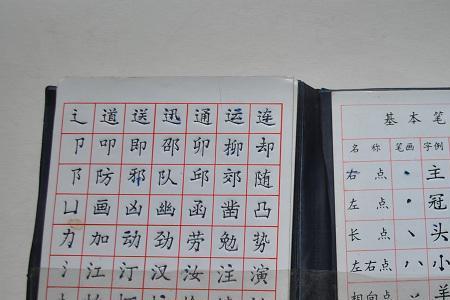 辶 道 送 迅 通 运 连
卩 叩 即 邵 卯 抑 却
阝 防 邪 队 邱 郊 随
凵 画 凶 幽 函 凿 凸
力 加 动 劲 劳 勉 势
氵 江 汀 汉 汝 注 演
基 本 笔
名 称 笔画 字例
右 点 丶 主
左 点 冠
长 点 丶 头
左右点 八 小
相向点 丷 羊